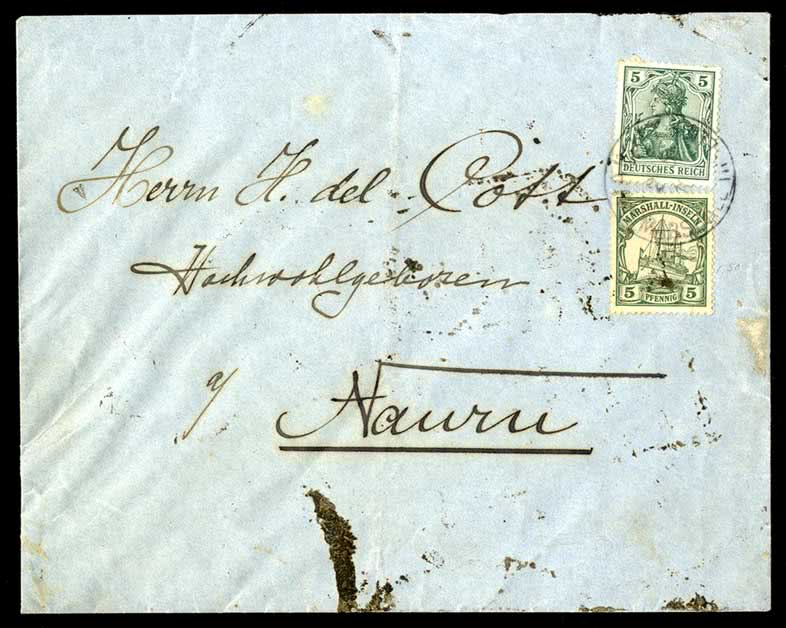 5 5
DEUTSCHES REICH
MARSHALL-INSELN
5 5
PFENNIG
Herrn H. del Cott.
Hochwohlgeboren
a/
Nauru